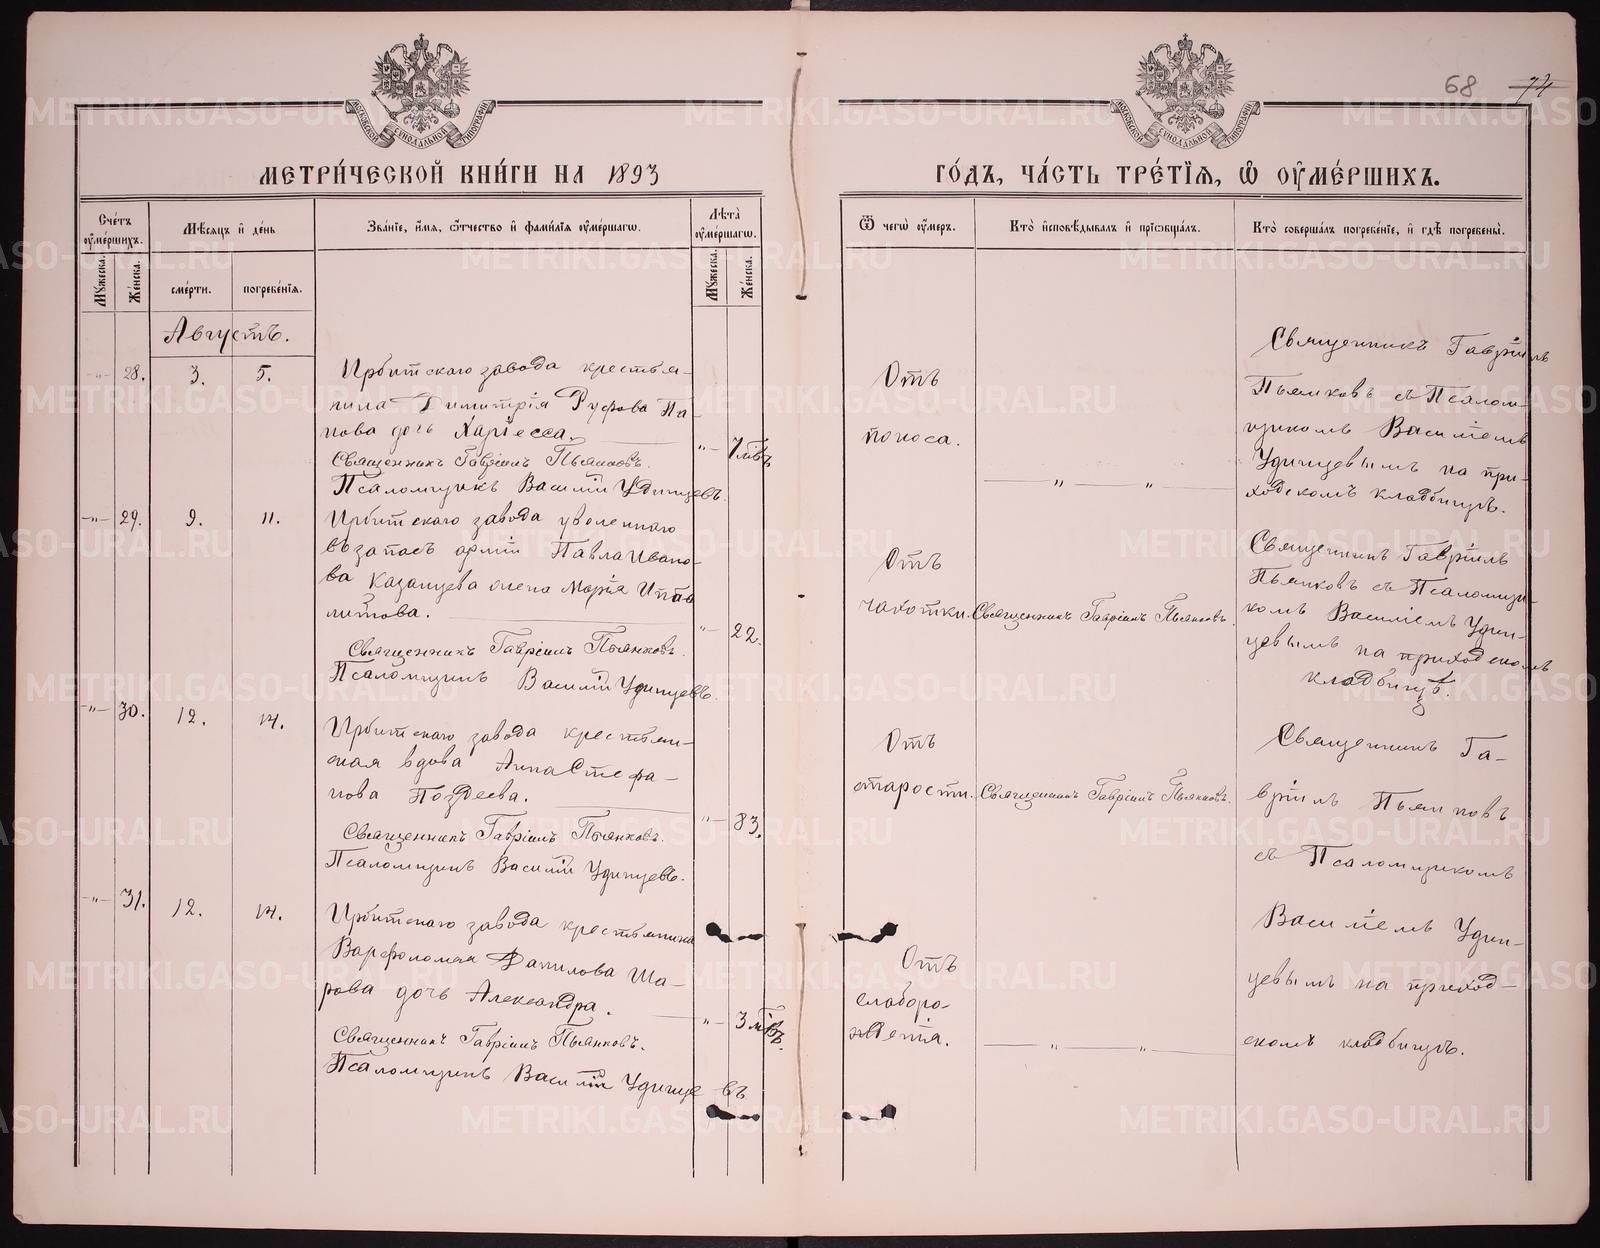 68 74
МЕТРИ́ЧЕСКОЙ КНИ́ГИ НА 1893
ГО́ДЪ, ЧА́СТЬ ТРЕ́ТІѦ, Ѡ҆ ОУ҆МЕ́РШИХЪ.
МОСКОВСКОЙ СѴНОДАЛЬНОЙ ТИПОГРАФІИ
МОСКОВСКОЙ СѴНОДАЛЬНОЙ ТИПОГРАФІИ
Сче́тъ оу҆ме́ршихъ.
Мѣ́сѧцъ и҆ де́нь
Зва́нїе, и҆́мѧ, ѻ҆́тчество и҆ фами́лїѧ оу҆ме́ршагѡ.
Лѣта̀ оу҆ме́ршагѡ.
Мꙋ́жеска.
Же́нска.
сме́рти.
погребе́нїѧ.
Мꙋ́жеска.
Же́нска.
Ѿ чегѡ̀ оу҆́меръ.
Кто̀ и҆сповѣ́дывалъ и҆ прїѡбща́лъ.
Кто̀ соверша́лъ погребе́нїе, и҆ гдѣ̀ погребены̀.
Августъ.
-"- 28. 3. 5.
Ирбитскаго завода крестья-
нина Димитрія Руфова Па
нова дочь Харіесса.
" 7 мѣс
Священникъ Гавріилъ Пьянковъ.
Псаломщикъ Василій Удинцевъ.
Отъ
поноса.
— " — " —
Священникъ Гавріилъ
Пьянковъ съ Псалом-
щикомъ Василіемъ
Удинцевымъ на при-
ходскомъ кладбищѣ.
-"- 29. 9. 11.
Ирбитскаго завода уволеннаго
въ запасъ арміи Павла Ивано-
ва Казанцева жена Марія Иппо
литова.
" 22.
Священникъ Гавріилъ Пьянковъ.
Псаломщикъ Василій Удинцевъ.
Отъ
чахотки.
Священникъ Гавріилъ Пьянковъ.
Священникъ Гавріилъ
Пьянковъ съ Псаломщи-
комъ Василіемъ Удин-
цевымъ на приходскомъ
кладбищѣ.
-"- 30. 12. 14.
Ирбитскаго завода крестьян-
ская вдова Анна Стефа-
нова Поздеева.
" 83.
Священникъ Гавріилъ Пьянковъ.
Псаломщикъ Василій Удинцевъ.
Отъ
старости.
Священникъ Гавріилъ Пьянковъ.
Священникъ Га-
вріилъ Пьянковъ
съ Псаломщикомъ
-"- 31. 12. 14.
Ирбитскаго завода крестьянина
Варфоломея Данилова Ша-
рова дочь Александра.
" 3 мѣс.
Священникъ Гавріилъ Пьянковъ.
Псаломщикъ Василій Удинцевъ
Отъ
слаборо-
жденія.
— " — " —
Василіемъ Удин-
цевымъ на приход-
скомъ кладбищѣ.
METRIKI.GASO-URAL.RU